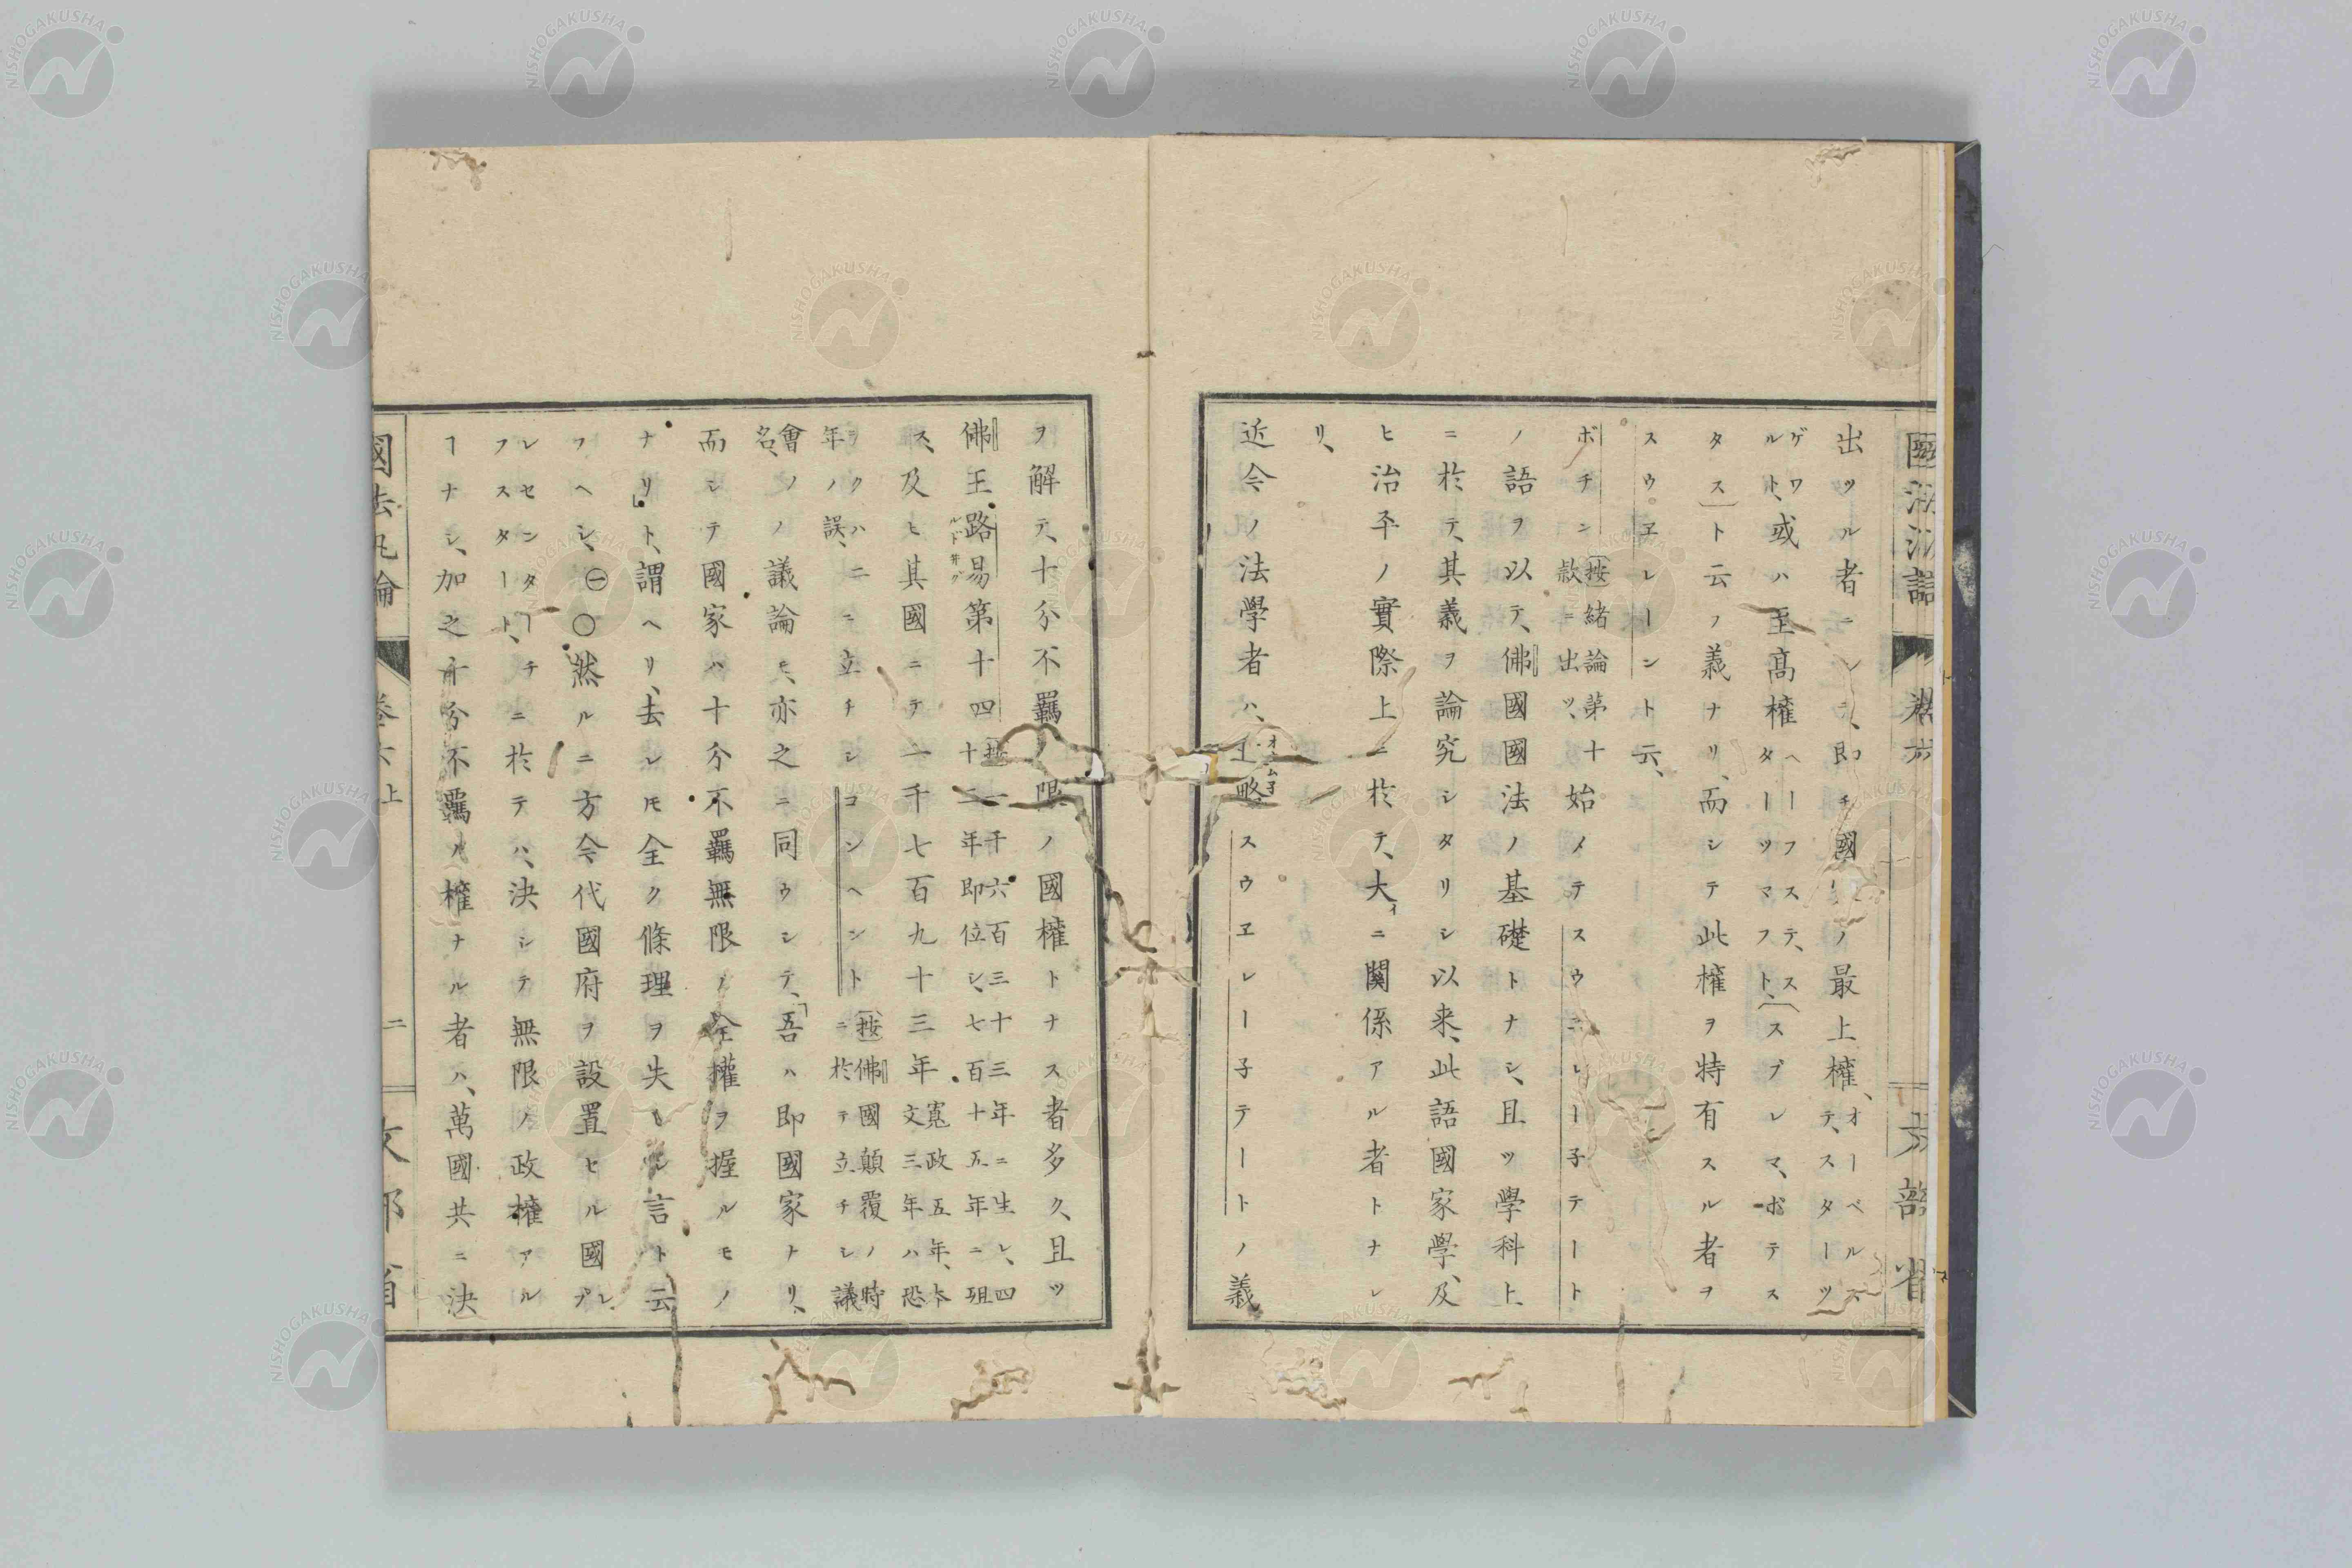 出ツル者ニシテ、即チ國ノ最上權、オーベルステ、スターツ
ゲワルト、或ハ至髙權ヘーフステ、スターツマフト、スプレマ、ポテス
タストト云フ義ナリ、而シテ此權ヲ特有スル者ヲ
スウヱレーント云、
ボヂン按緒論第十款ニ出ツ、始メテスウヱレー子テート
ノ語ヲ以テ、佛國國法ノ基礎トナシ、且ツ學科上
ニ於テ、其義ヲ論究シタリシ以来、此語國家學、及
ヒ治平ノ實際上ニ於テ、大ニ関係アル者トナレ
リ、
近今ノ法學者ハ、スウヱレー子テートノ義
ヲ解テ、十分不羈無限ノ國權トナス者多ク、且ツ
佛王路易第十四按一千六百三十三年ニ生レ、四十三年即位シ、七百十五年ニ殂
ス、及ヒ其國ニテ一千七百九十三年寬政五年、本文三年ハ恐
ラクハ二年ノ誤、ニ立チシコンヘント按佛國顛覆ノ時ニ於テ立チシ議
會ノ名、ノ議論モ、亦之ニ同ウシテ、吾ハ即國家ナリ、
而シテ國家ハ十分不羈無限ノ全權ヲ握ルモノ
ナリト、謂ヘリ、去レ𪜈全ク條理ヲ失ヒシ言ト云
フヘシ、㊀○然ルニ方今代國府ヲ設置セル國レプ
レセンタチーフスタートニ於テハ、決シテ無限ノ政權アル
ヿナシ、加之十分不羈ノ權ナル者ハ、萬國共ニ決
國法汎論
卷六上
二
文部省